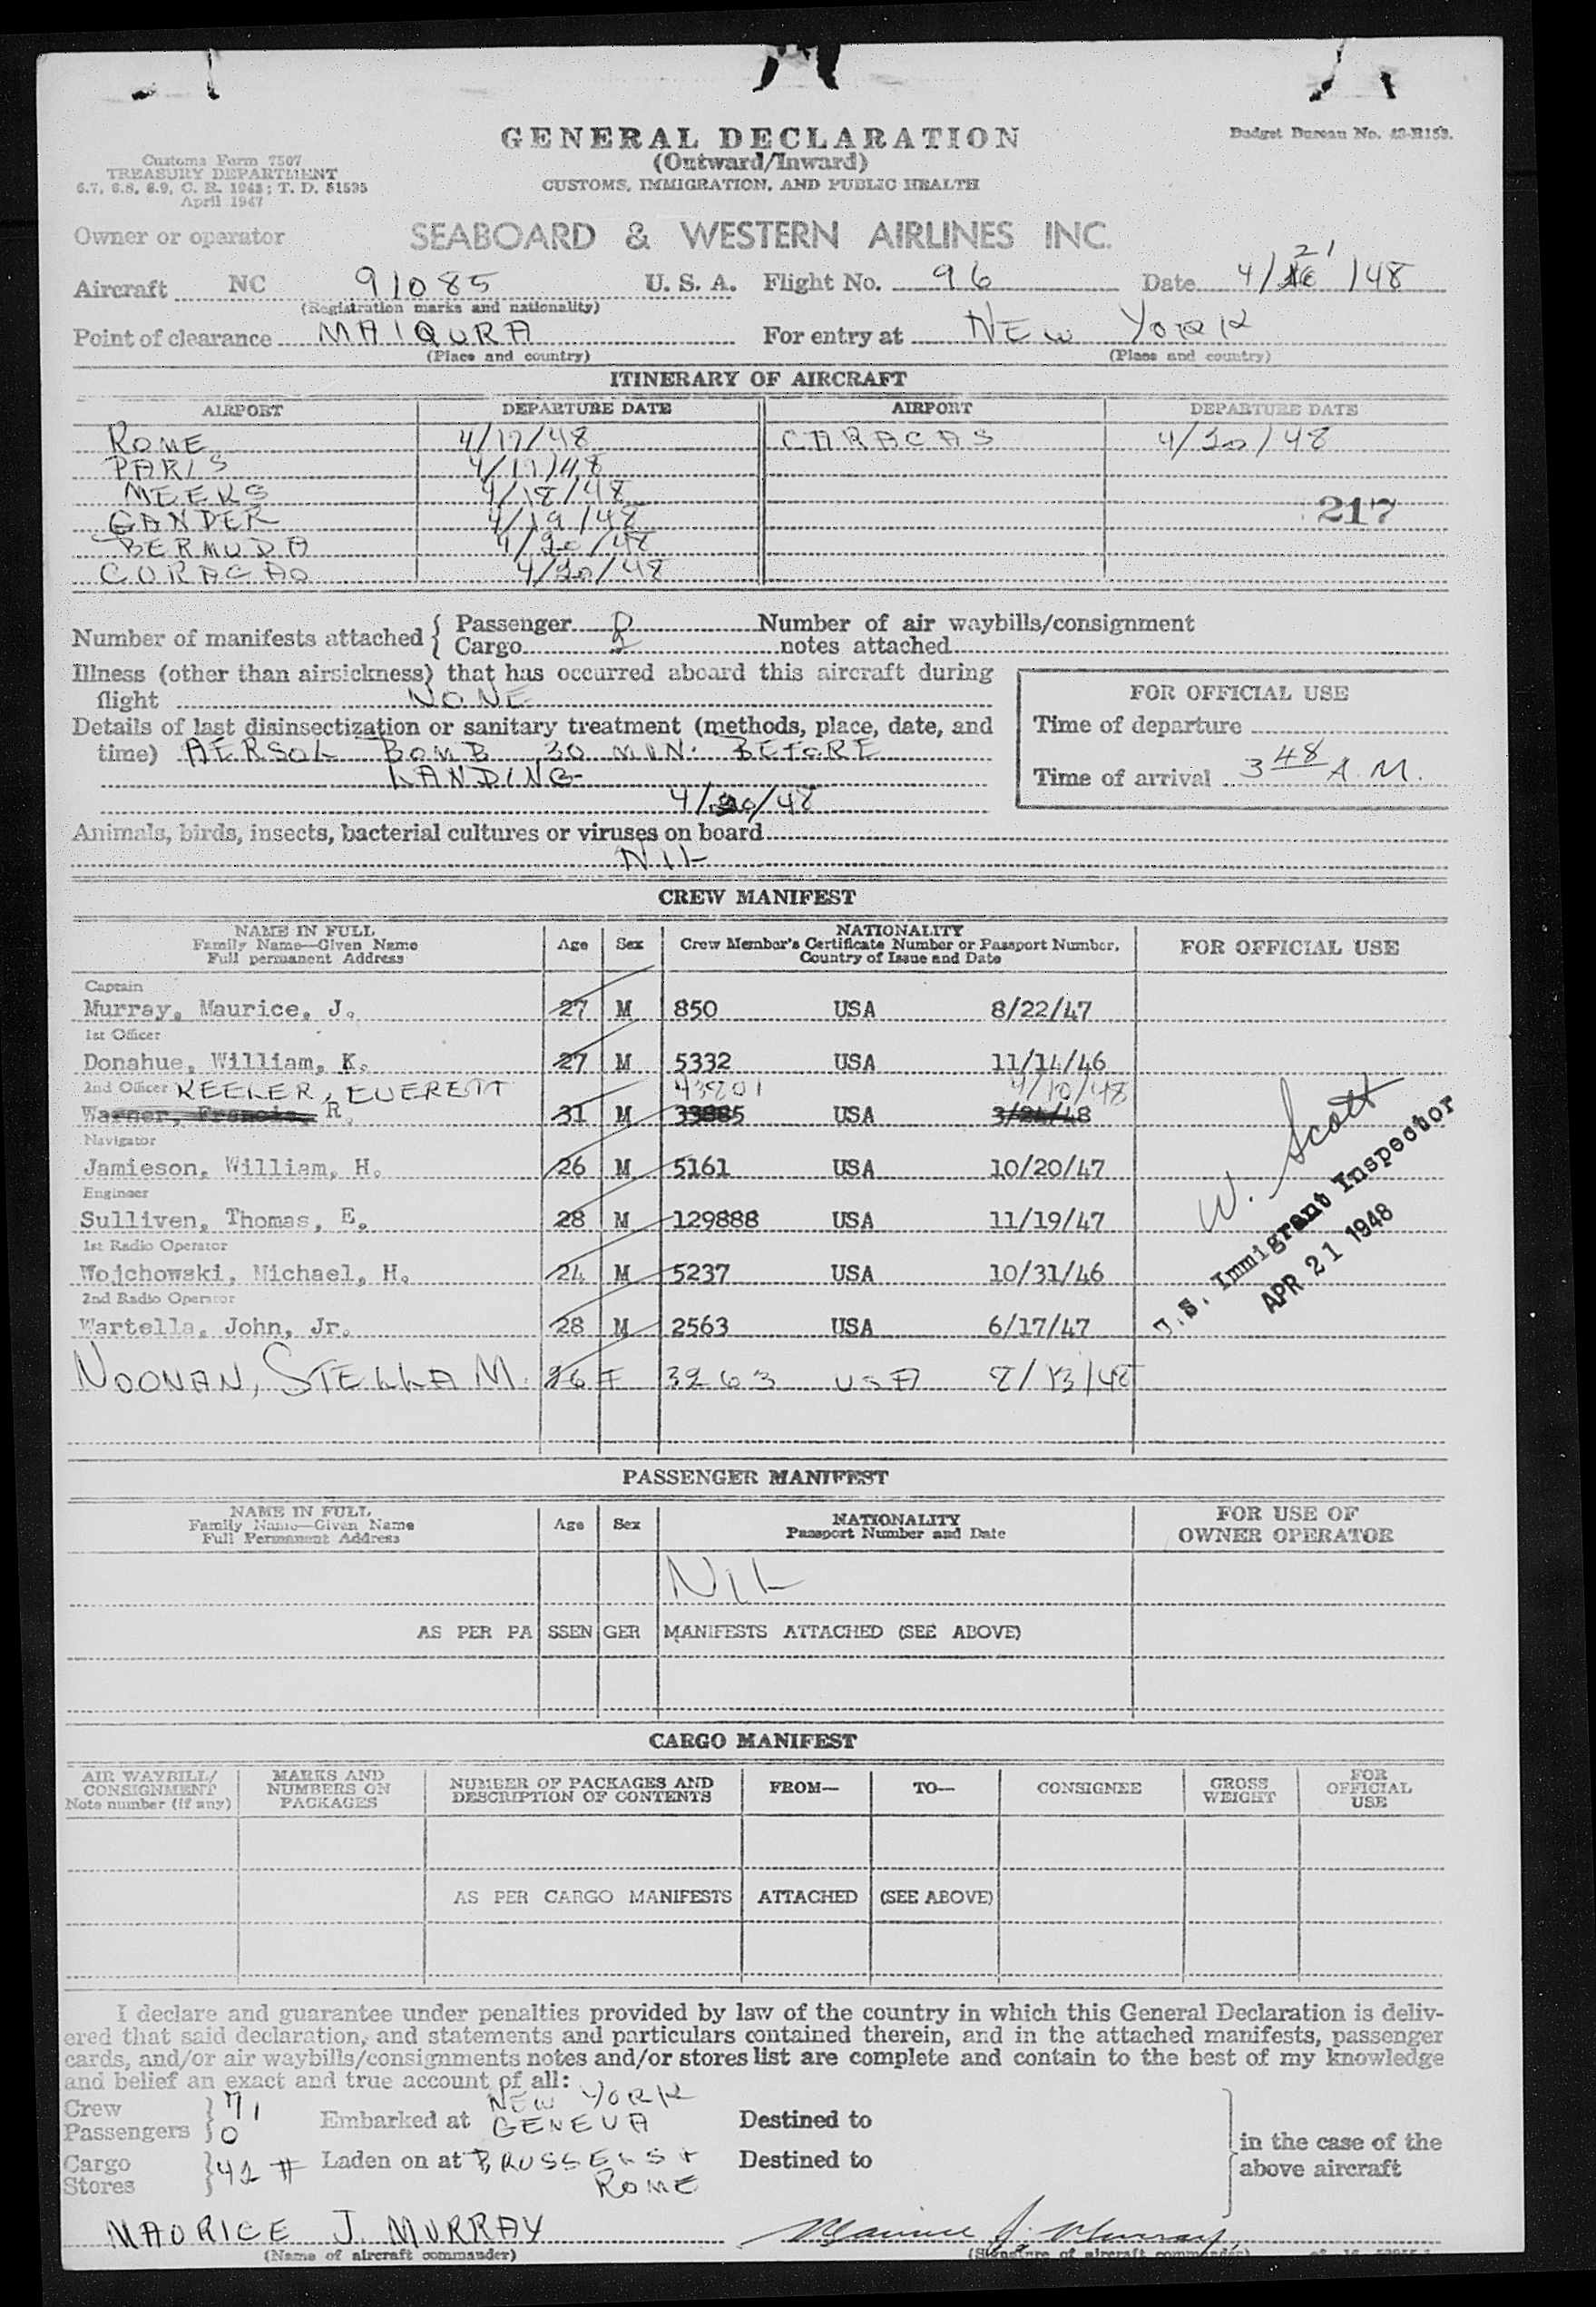 GENERAL DECLARATION
(Outward/Inward)
CUSTOMS, IMMIGRATION, AND PUBLIC HEALTH
Budget Bureau No. 43-R153.
Customs Form 7507
TREASURY DEPARTMENT
6.7, 6.8, 6.9, C. R. 1943; T. D. 51595
April 1947
Owner or operator SEABOARD & WESTERN AIRLINES INC.
Aircraft NC 91085 U. S. A. Flight No. 96 Date 4/21/48
(Registration marks and nationality)
Point of clearance MAIQURA For entry at NEW YORK
(Place and country) (Place and country)
ITINERARY OF AIRCRAFT
AIRPORT DEPARTURE DATE AIRPORT DEPARTURE DATE
ROME 4/17/48 CARACAS 4/20/48
PARIS 4/17/48
MEEKS 4/18/48
GANDER 4/19/48 217
BERMUDA 4/20/48
CURACAO 4/20/48
Number of manifests attached { Passenger 0 Number of air waybills/consignment
Cargo 2 notes attached
Illness (other than airsickness) that has occurred aboard this aircraft during
flight NONE
Details of last disinsectization or sanitary treatment (methods, place, date, and
time) AERSOL BOMB 30 MIN. BEFORE
LANDING
4/20/48
FOR OFFICIAL USE
Time of departure
Time of arrival 3 48 A.M.
Animals, birds, insects, bacterial cultures or viruses on board
NIL
CREW MANIFEST
NAME IN FULL
Family Name—Given Name
Full permanent Address
Age Sex
NATIONALITY
Crew Member's Certificate Number or Passport Number,
Country of Issue and Date
FOR OFFICIAL USE
Captain
Murray, Maurice, J. 27 M 850 USA 8/22/47
1st Officer
Donahue, William, K. 27 M 5332 USA 11/14/46
2nd Officer KEELER, EVERETT 43801 4/10/48
Warner, Francis, R. 31 M 33885 USA 3/24/48
Navigator
Jamieson, William, H. 26 M 5161 USA 10/20/47
Engineer
Sulliven, Thomas, E. 28 M 129888 USA 11/19/47
1st Radio Operator
Wojchowski, Michael, H. 24 M 5237 USA 10/31/46
2nd Radio Operator
Wartella, John, Jr. 28 M 2563 USA 6/17/47
NOONAN, STELLA M. 26 F 3263 USA 8/13/48
W. Scott
U.S. Immigrant Inspector
APR 21 1948
PASSENGER MANIFEST
NAME IN FULL
Family Name—Given Name
Full Permanent Address
Age Sex
NATIONALITY
Passport Number and Date
FOR USE OF
OWNER OPERATOR
NIL
AS PER PASSENGER MANIFESTS ATTACHED (SEE ABOVE)
CARGO MANIFEST
AIR WAYBILL/
CONSIGNMENT
Note number (if any)
MARKS AND
NUMBERS ON
PACKAGES
NUMBER OF PACKAGES AND
DESCRIPTION OF CONTENTS
FROM— TO— CONSIGNEE
GROSS
WEIGHT
FOR
OFFICIAL
USE
AS PER CARGO MANIFESTS ATTACHED (SEE ABOVE)
I declare and guarantee under penalties provided by law of the country in which this General Declaration is deliv-
ered that said declaration, and statements and particulars contained therein, and in the attached manifests, passenger
cards, and/or air waybills/consignments notes and/or stores list are complete and contain to the best of my knowledge
and belief an exact and true account of all:
Crew 7 1 Embarked at NEW YORK Destined to
Passengers 0 GENEVA
in the case of the
above aircraft
Cargo 42 # Laden on at BRUSSELS + Destined to
Stores ROME
MAURICE J. MURRAY Maurice J. Murray
(Name of aircraft commander) (Signature of aircraft commander)